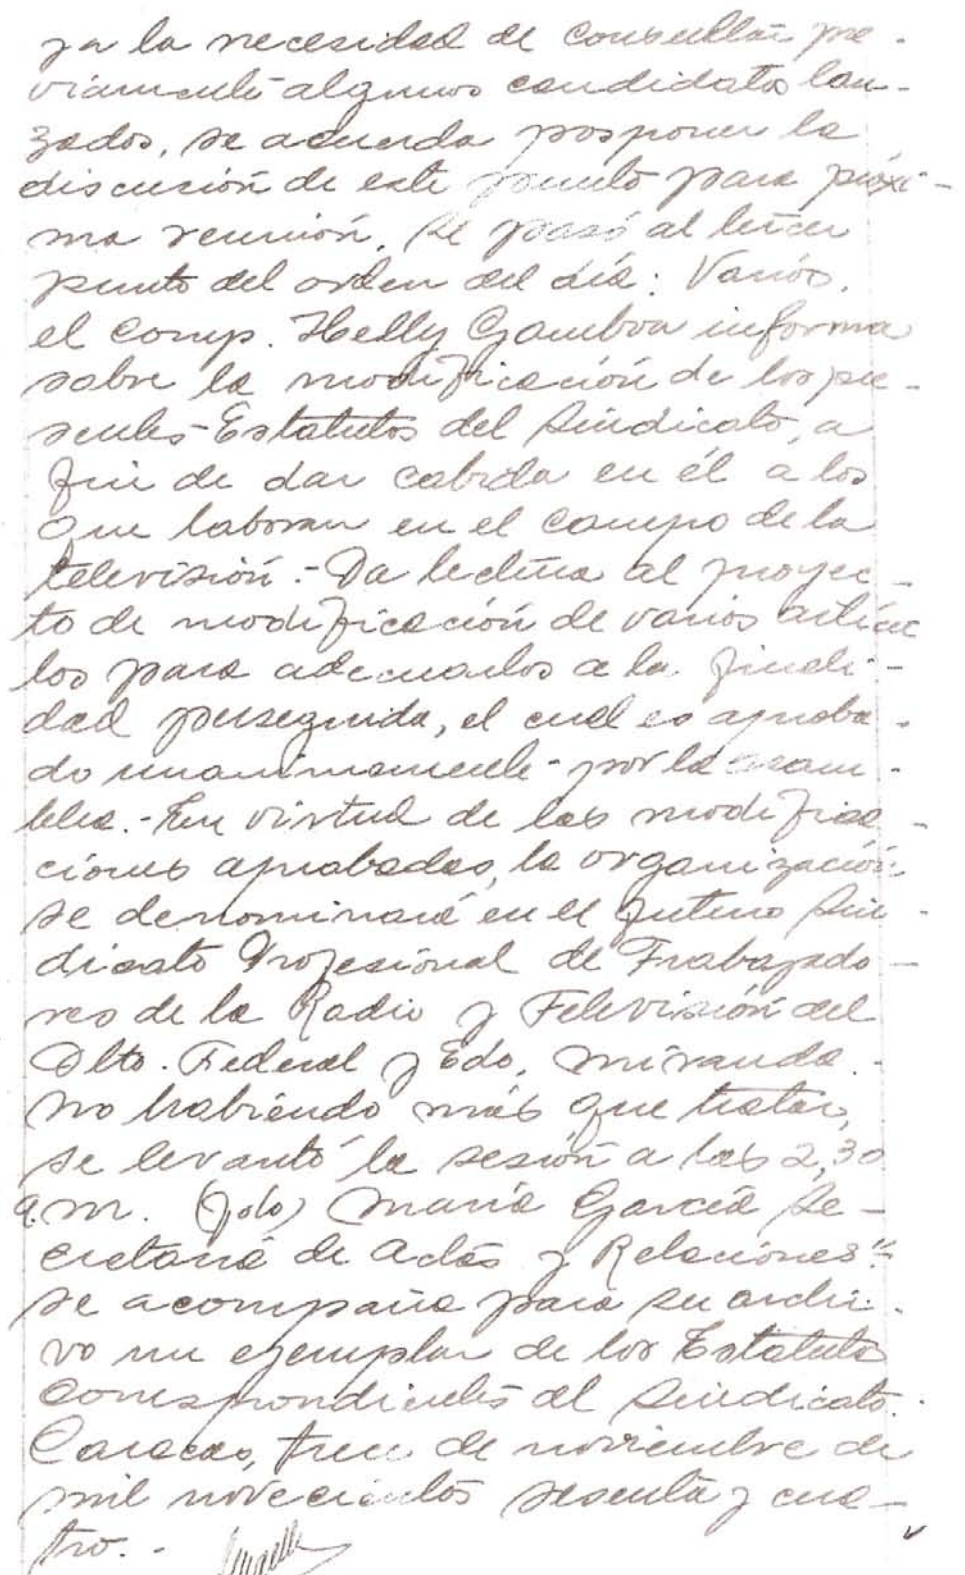 y a la necesidad de consultar pre-
viamente algunos candidatos lan-
zados, se acuerda posponer la
discusión de este punto para próxi-
ma reunión. Se pasó al tercer
punto del orden del día: Varios.
el comp. Helly Gamboa informa
sobre la modificación de los pre-
sentes Estatutos del Sindicato, a
fin de dar cabida en él a los
que laboran en el campo de la
televisión.- Da lectura al proyec-
to de modificación de varios artícu
los para adecuarlos a la finali-
dad perseguida, el cual es aproba-
do unanimamente por la asam-
blea.- En virtud de las modifica-
ciones aprobadas, la organización
se denominará en el futuro Sin-
dicato Profesional de Trabajado-
res de la Radio y Televisión del
Dtto. Federal y Edo. Miranda.
No habiendo más que tratar,
se levantó la sesión a las 2,30
a.m. (fdo) María García Se-
cretaria de Actas y Relaciones".
Se acompaña para su archi-
vo un ejemplar de los Estatutos
correspondientes al Sindicato.
Caracas, trece de noviembre de
mil novecientos sesenta y cua-
tro.-